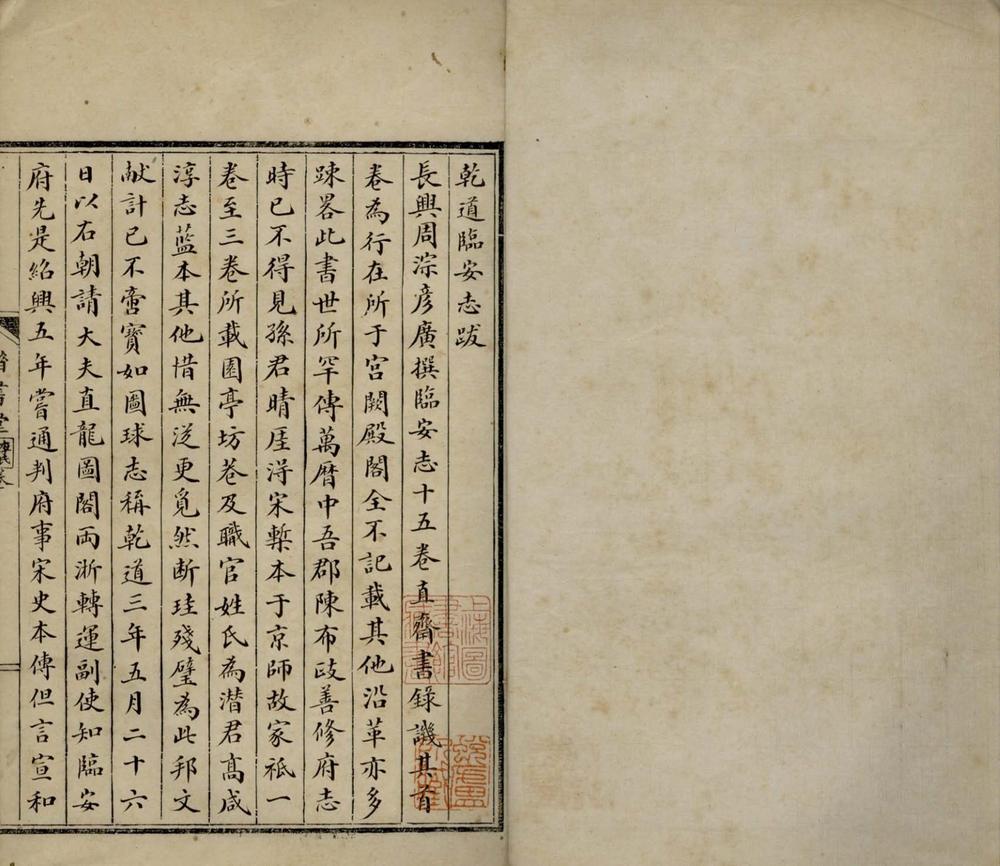 乾道臨安志跋
長興周淙彥廣撰臨安志十五卷直齋書錄譏其首
卷為行在所于宮闕殿閣全不記載其他沿革亦多
踈畧此書世所罕傳萬曆中吾郡陳布政善修府志
時已不得見孫君晴厓淂宋槧本于京師故家祗一
卷至三卷所載園亭坊巷及職官姓氏為潛君高咸
淳志藍本其他惜無從更覓然断珪殘璧為此邦文
献計已不啻寶如圖球志稱乾道三年五月二十六
日以右朝請大夫直龍圖閣両浙轉運副使知臨安
府先是紹興五年嘗通判府事宋史本傳但言宣和
上海圖書館藏